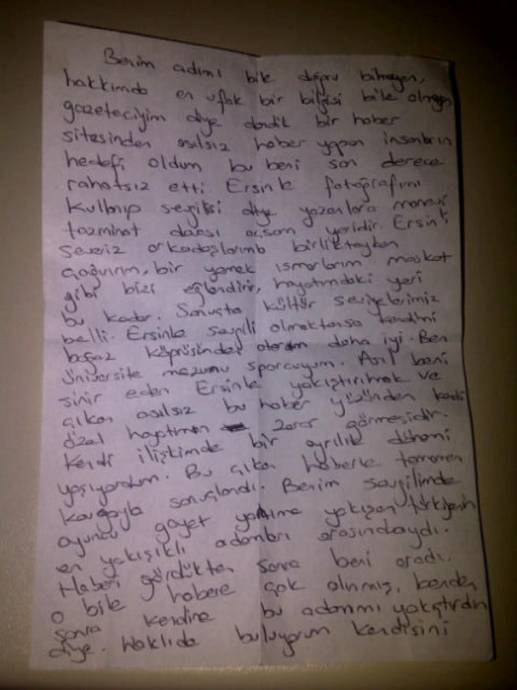 Benim adımı bile doğru bilmeyen,
hakkımda en ufak bir bilgisi bile olmayan
gazeteciyim diye dandik bir haber
sitesinden asılsız haber yapan insanların
hedefi oldum bu beni son derece
rahatsız etti. Ersin'le fotoğrafımı
kullanıp sevgilisi diye yazanlara manevi
tazminat davası açsam yeridir. Ersin'i
severiz arkadaşlarımla birlikteyken
çağırırım, bir yemek ısmarlarım maskot
gibi bizi eğlendirir, hayatımdaki yeri
bu kadar. Sonuçta kültür seviyelerimiz
belli. Ersinle sevgili olmaktansa kendimi
boğaz köprüsünden atarım daha iyi. Ben
üniversite mezunu sporcuyum. Asıl beni
sinir eden Ersinle yakıştırılmak ve
çıkan asılsız bu haber yüzünden kendi
özel hayatımın zarar görmesidir.
Kendi ilişkimde bir ayrılık dönemi
yaşıyordum. Bu çıkan haberle tamamen
kavgayla sonuçlandı. Benim sevgilimde
oyuncu gayet yanıma yakışan türkiyenin
en yakışıklı adamları arasındaydı.
Haberi gördükten sonra beni aradı.
O bile habere çok alınmış, benden
sonra kendine bu adamı yakıştırdın
diye. Haklıda buluyorum kendisini